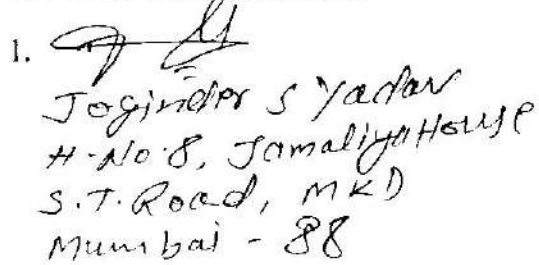 1.
Joginder S Yadav
H-No.8, Jamaliya House
S.T. Road, MKD
Mumbai - 88